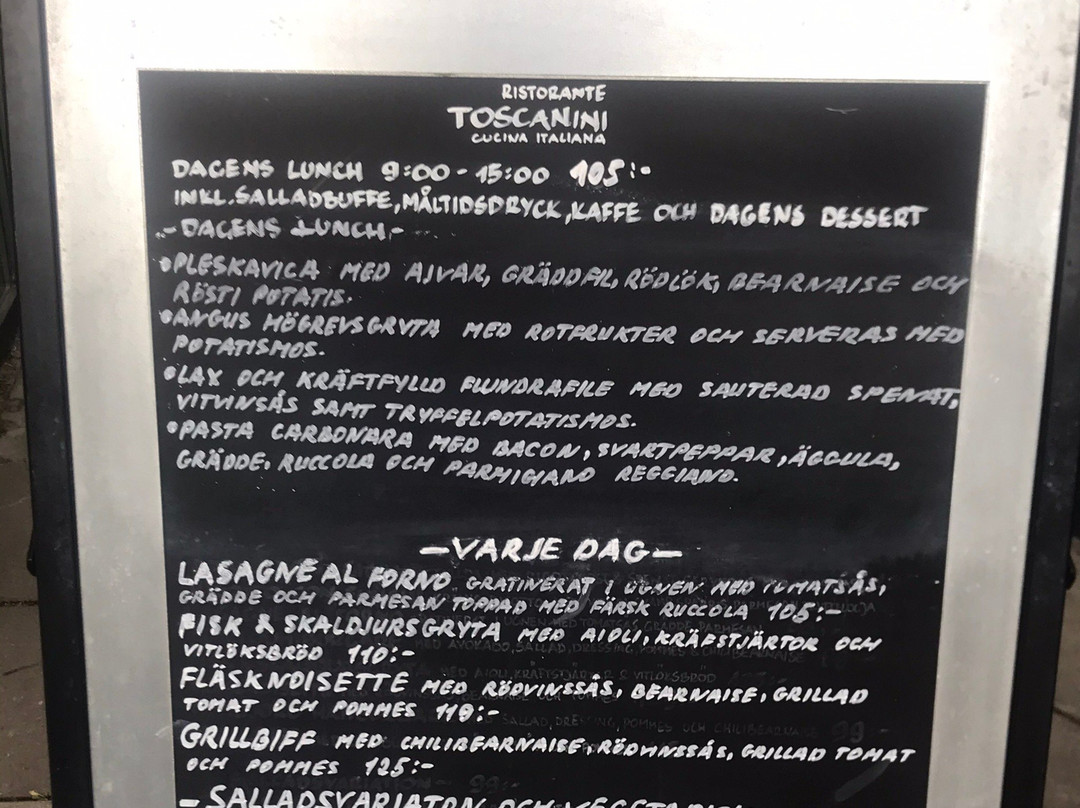 RISTORANTE
TOSCANINI
CUCINA ITALIANA
DAGENS LUNCH 9:00-15:00 105:-
INKL.SALLADBUFFE,MÅLTIDSDRYCK,KAFFE OCH DAGENS DESSERT
-DAGENS LUNCH,-
•PLESKAVICA MED AJVAR, GRÄDDFIL, RÖDLÖK, BEARNAISE OCH
RÖSTI POTATIS.
•ANGUS HÖGREVSGRYTA MED ROTFRUKTER OCH SERVERAS MED
POTATISMOS.
•LAX OCH KRÄFTFYLLD FLUNDRAFILE MED SAUTERAD SPENAT,
VITVINSÅS SAMT TRYFFELPOTATISMOS.
•PASTA CARBONARA MED BACON, SVARTPEPPAR, ÄGGULA,
GRÄDDE, RUCCOLA OCH PARMIGIANO REGGIANO.
-VARJE DAG-
LASAGNE AL FORNO GRATINERAT I UGNEN MED TOMATSÅS,
GRÄDDE OCH PARMESAN TOPPAD MED FÄRSK RUCCOLA 105:-
FISK & SKALDJURSGRYTA MED AIOLI, KRÄFSTJÄRTOR OCH
VITLÖKSBRÖD 110:-
FLÄSKNOISETTE MED RÖDVINSSÅS, BEARNAISE, GRILLAD
TOMAT OCH POMMES 119:-
GRILLBIFF MED CHILIBEARNAISE, RÖDVINSSÅS, GRILLAD TOMAT
OCH POMMES 125:-
- SALLADSVARIATON OCH